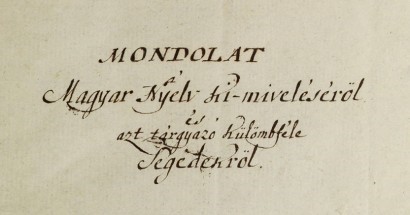 MONDOLAT
a
Magyar Nyelv ki-miveléséröl
és
azt tárgyazó külömbféle
Segédekröl.